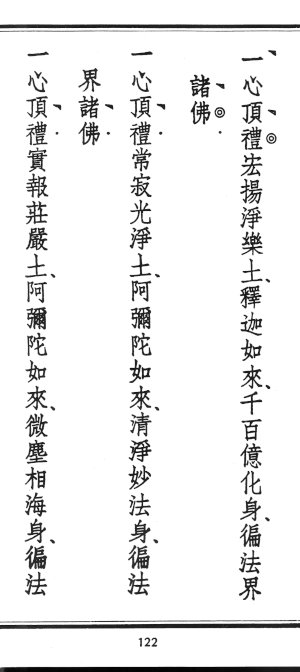 一心頂禮宏揚淨樂土、釋迦如來、千百億化身、徧法界
諸佛
一心頂禮常寂光淨土、阿彌陀如來、清淨妙法身、徧法
界諸佛
一心頂禮實報莊嚴土、阿彌陀如來、微塵相海身、徧法
122